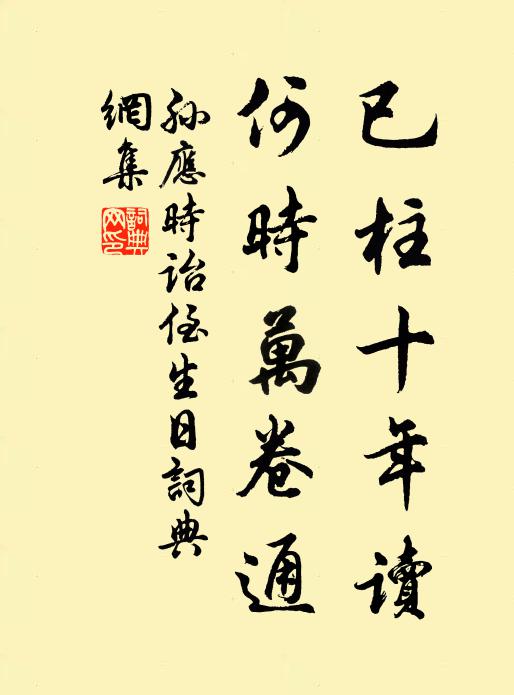 已柱十年讀
何時萬卷通
孫應時詒侄生日詞典
網集
詞典網印